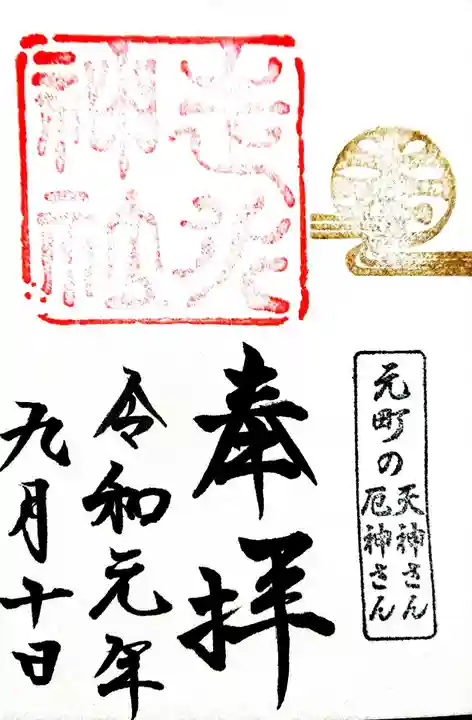 走水
神社
元町の天神さん
厄神さん
奉拝
令和元年
九月十日